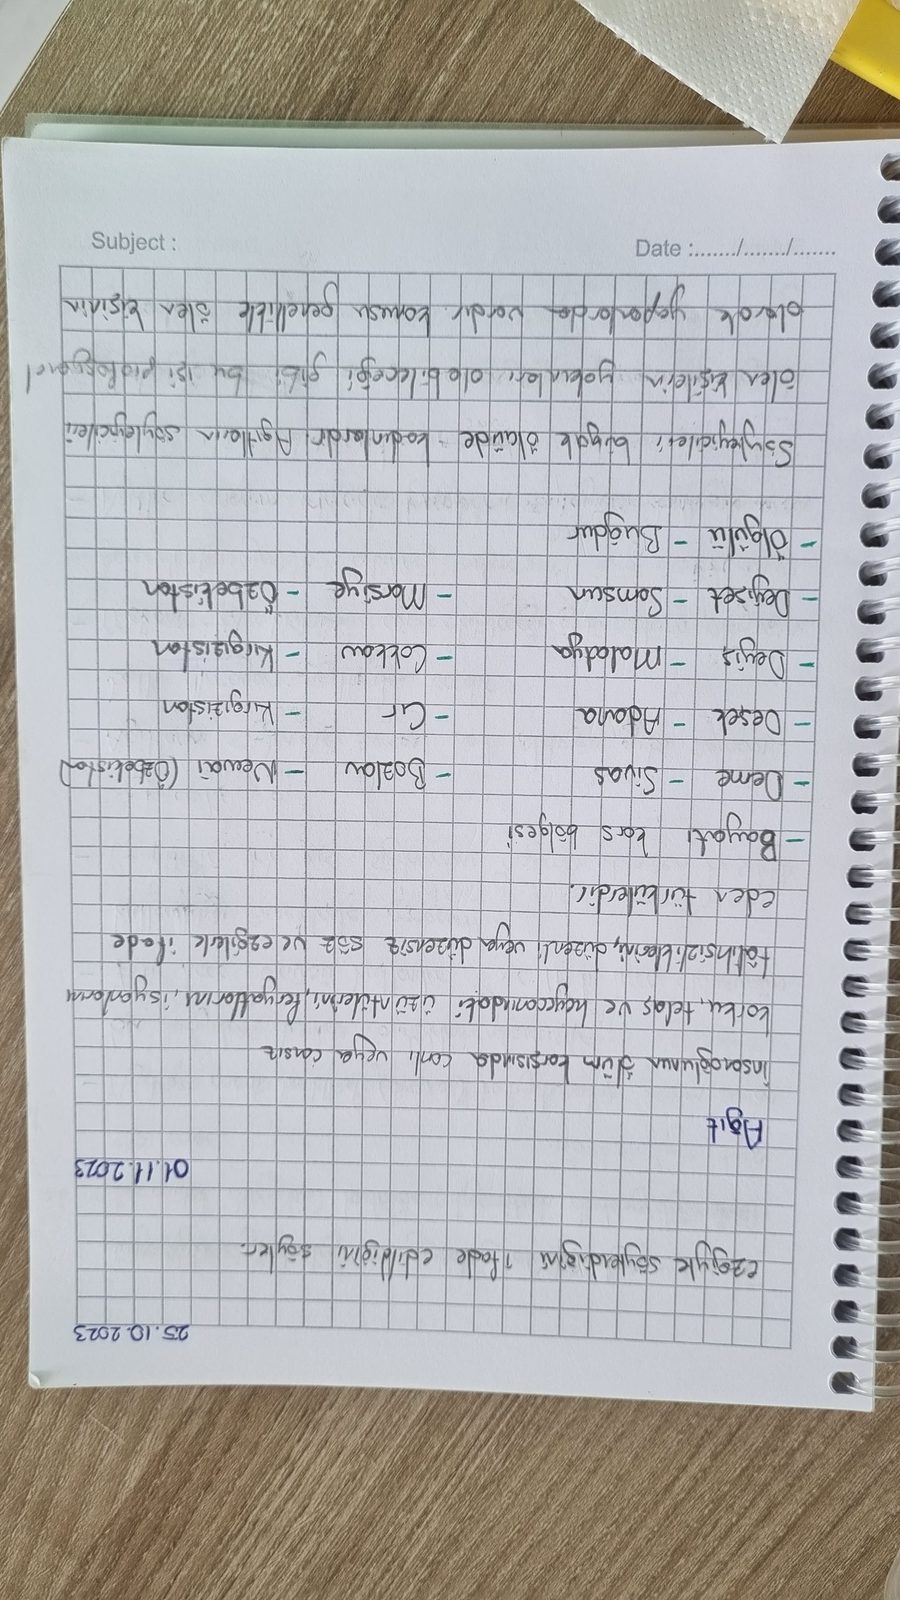 25.10.2023
ezgiyle söylendiğini ifade edildiğini söyler.
01.11.2023
Ağıt
insanoğlunun ölüm karşısında canlı veya cansız
korku, telaş ve heyecanındaki üzüntülerini, feryatlarını, isyanlarını
talihsizliklerini, düzenli veya düzensiz söz ve ezgilerle ifade
eden türkülerdir.
- Bayatı kars bölgesi
- Deme - Sivas - Bozlav - Nevai (Özbekistan)
- Deşek - Adana - Cır - Kırgızistan
- Deyiş - Malatya - Coktav - Kırgızistan
- Deyişet - Samsun - Marsiye - Özbekistan
- Ölgülü - Bugdur
Söyleyicileri büyük ölçüde kadınlardır. Ağıtların söyleyicileri
ölen kişilerin yakınları olabileceği gibi bu işi profosyonel
olarak yapanlarda vardır. konusu genellikle ölen kişinin
Subject :
Date :......./......./.......